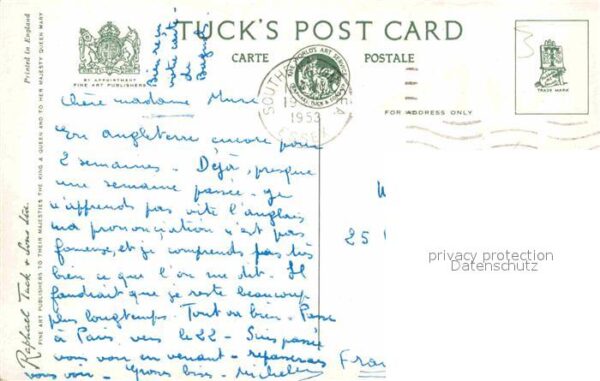 TUCK'S POST CARD
CARTE POSTALE
BY APPOINTMENT
FINE ART PUBLISHERS
Printed in England
Raphael Tuck & Sons Ltd.
FINE ART PUBLISHERS TO THEIR MAJESTIES THE KING & QUEEN AND TO HER MAJESTY QUEEN MARY
FOR ADDRESS ONLY
TRADE MARK
SOUTH
1953
ESSEX
Bien reçu
votre carte
de
Chère madame
En angleterre encore pour
2 semaines - Déjà, presque
une semaine passée. Je
n'apprends pas vite l'anglais
ma prononciation n'est pas
fameuse, et je comprends pas très
bien ce que l'on me dit. Il
faudrait que je reste beaucoup
plus longtemps. Tout va bien - Passe
à Paris vers le 22 - Suis passée
vous voir en venant - repasserai
vous voir - Gros bises - Micheline
25
Fran
privacy protection
Datenschutz